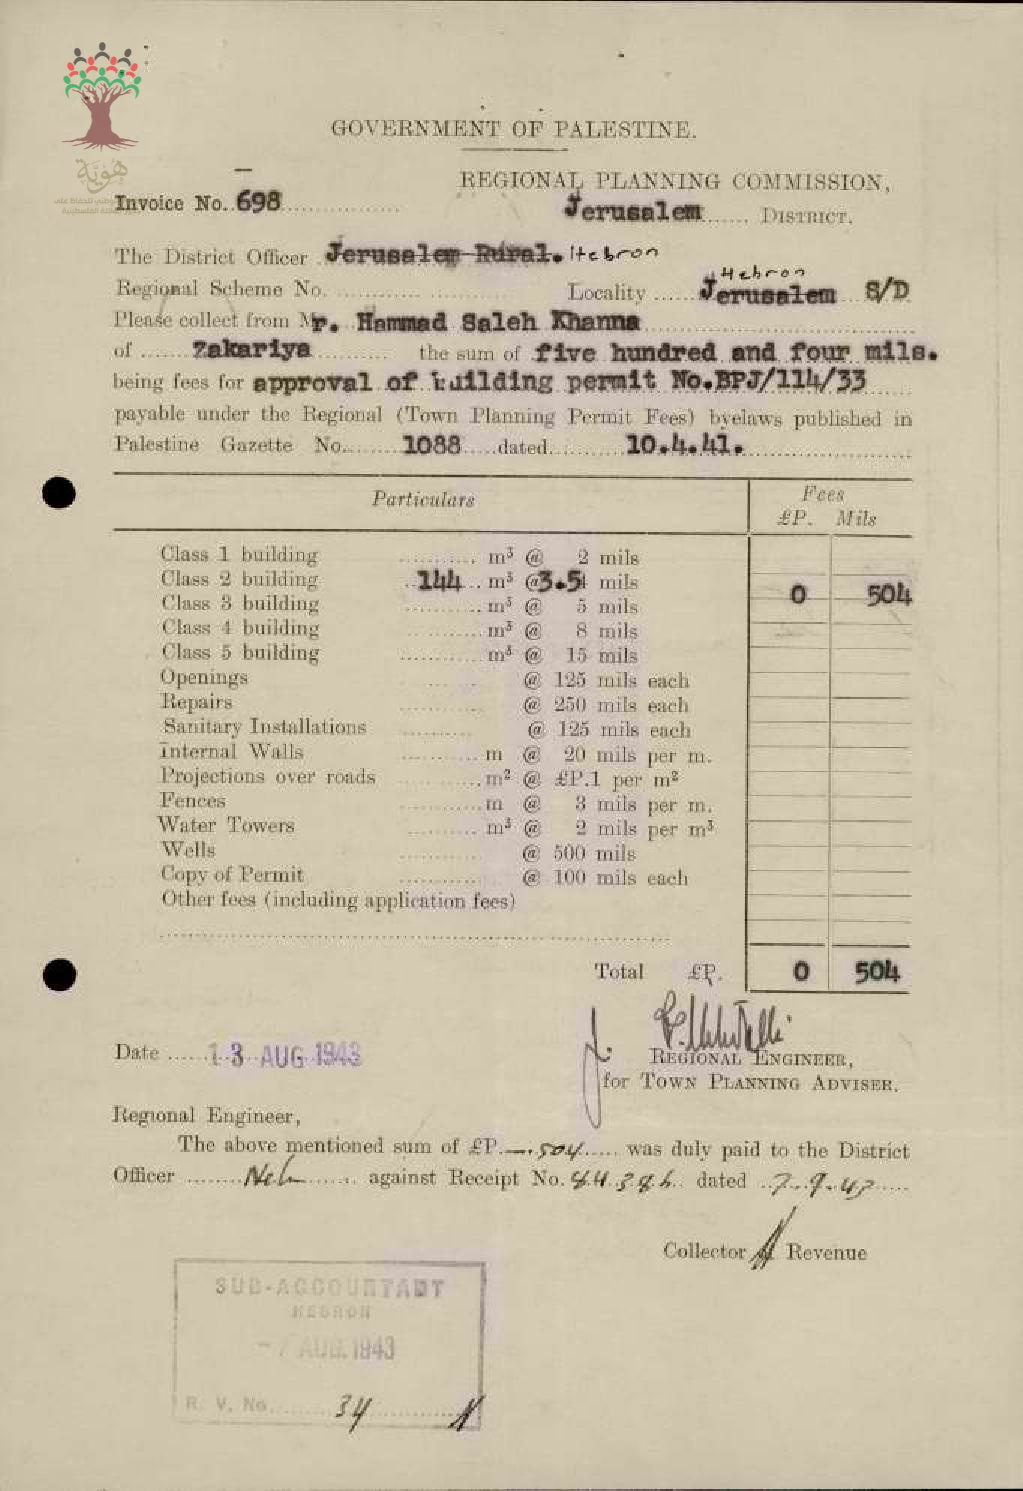 هويّة
GOVERNMENT OF PALESTINE.
REGIONAL PLANNING COMMISSION,
Invoice No. 698
Jerusalem DISTRICT.
The District Officer Jerusalem Rural. Hebron
Hebron
Regional Scheme No. Locality Jerusalem S/D
Please collect from Mr. Hammad Saleh Khanna
of Zakariya the sum of five hundred and four mils.
being fees for approval of building permit No.BPJ/114/33
payable under the Regional (Town Planning Permit Fees) byelaws published in
Palestine Gazette No. 1088 dated 10.4.41.
Particulars Fees
£P. Mils
Class 1 building m³ @ 2 mils
Class 2 building 144 m³ @ 3.5 mils 0 504
Class 3 building m³ @ 5 mils
Class 4 building m³ @ 8 mils
Class 5 building m³ @ 15 mils
Openings @ 125 mils each
Repairs @ 250 mils each
Sanitary Installations @ 125 mils each
Internal Walls m @ 20 mils per m.
Projections over roads m² @ £P.1 per m²
Fences m @ 3 mils per m.
Water Towers m³ @ 2 mils per m³
Wells @ 500 mils
Copy of Permit @ 100 mils each
Other fees (including application fees)
Total £P. 0 504
Date 13 AUG 1943
REGIONAL ENGINEER,
for TOWN PLANNING ADVISER.
Regional Engineer,
The above mentioned sum of £P. —.504 was duly paid to the District
Officer against Receipt No. dated 7.9.43
Collector of Revenue
SUB-ACCOUNTANT
HEBRON
-7 AUG. 1943
R. V. No. 34